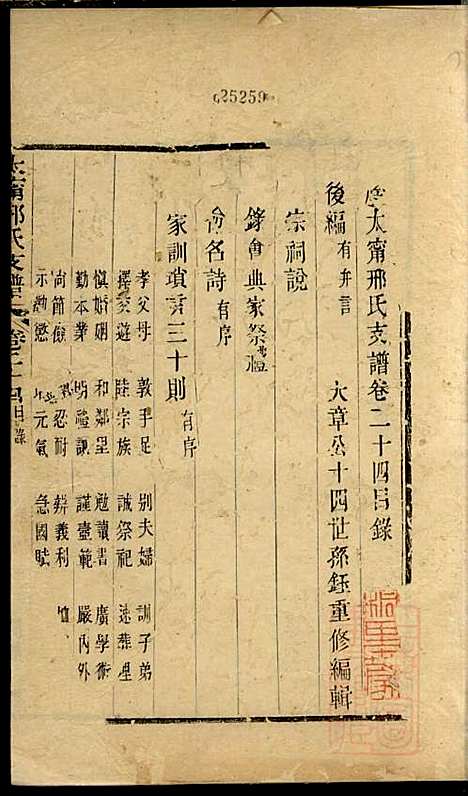 025259
唐太甯邢氏支譜卷二十四目錄
後編 有弁言 大章公十四世孫鈺重修編輯
宗祠說
錄會典家祭禮
命名詩 有序
家訓瑣言三十則 有序
孝父母 敦手足 別夫婦 訓子弟
擇交遊 睦宗族 誠祭祀 速葬埋
慎婚姻 和鄰里 勉讀書 廣學術
勤本業 明禮讓 謹臺範 嚴內外
尚節儉 忍耐 辨義利
示勸懲 元氣 急國賦
太甯邢氏支譜 卷二十四目錄